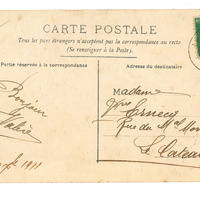 CARTE POSTALE
Tous les pays étrangers n'acceptent pas la correspondance au recto
(Se renseigner à la Poste).
Partie réservée à la correspondance
Adresse du destinataire
Bonjour
Madame
Rue du Mal Mor
Le Cateau
1911